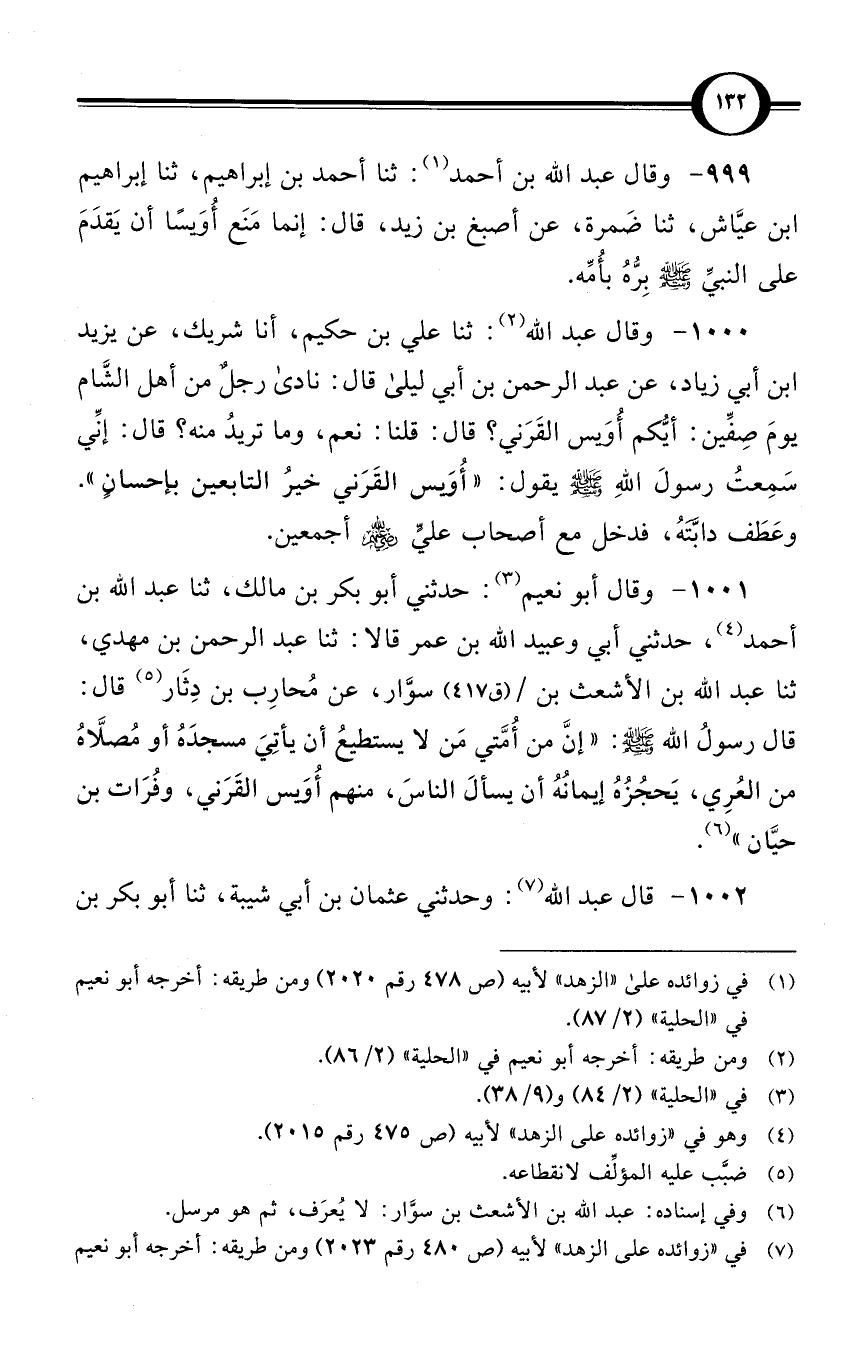 ١٣٢
٩٩٩- وقال عبد الله بن أحمد(١): ثنا أحمد بن إبراهيم، ثنا إبراهيم
ابن عيَّاش، ثنا ضَمرة، عن أصبغ بن زيد، قال: إنما مَنَع أُوَيسًا أن يَقدَمَ
على النبيِّ ﷺ بِرُّهُ بأُمِّه.
١٠٠٠- وقال عبد الله(٢): ثنا علي بن حكيم، أنا شريك، عن يزيد
ابن أبي زياد، عن عبد الرحمن بن أبي ليلىٰ قال: نادىٰ رجلٌ من أهل الشَّام
يومَ صِفِّين: أيُّكم أُوَيس القَرَني؟ قال: قلنا: نعم، وما تريدُ منه؟ قال: إنِّي
سَمِعتُ رسولَ اللهِ ﷺ يقول: «أُوَيس القَرَني خيرُ التابعين بإحسانٍ».
وعَطَف دابَّتَهُ، فدخل مع أصحاب عليٍّ ﵃ أجمعين.
١٠٠١- وقال أبو نعيم(٣): حدثني أبو بكر بن مالك، ثنا عبد الله بن
أحمد(٤)، حدثني أبي وعبيد الله بن عمر قالا: ثنا عبد الرحمن بن مهدي،
ثنا عبد الله بن الأشعث بن /(ق٤١٧) سوَّار، عن مُحارِب بن دِثَار(٥) قال:
قال رسولُ الله ﷺ: «إنَّ من أُمَّتي مَن لا يستطيعُ أن يأتيَ مسجدَهُ أو مُصلَّاهُ
من العُرِي، يَحجُزُهُ إيمانُهُ أن يسألَ الناسَ، منهم أُوَيس القَرَني، وفُرَات بن
حيَّان»(٦).
١٠٠٢- قال عبد الله(٧): وحدثني عثمان بن أبي شيبة، ثنا أبو بكر بن
(١) في زوائده علىٰ «الزهد» لأبيه (ص ٤٧٨ رقم ٢٠٢٠) ومن طريقه: أخرجه أبو نعيم
في «الحلية» (٢/ ٨٧).
(٢) ومن طريقه: أخرجه أبو نعيم في «الحلية» (٢/ ٨٦).
(٣) في «الحلية» (٢/ ٨٤) و(٩/ ٣٨).
(٤) وهو في «زوائده على الزهد» لأبيه (ص ٤٧٥ رقم ٢٠١٥).
(٥) ضبَّب عليه المؤلِّف لانقطاعه.
(٦) وفي إسناده: عبد الله بن الأشعث بن سوَّار: لا يُعرَف، ثم هو مرسل.
(٧) في «زوائده على الزهد» لأبيه (ص ٤٨٠ رقم ٢٠٢٣) ومن طريقه: أخرجه أبو نعيم